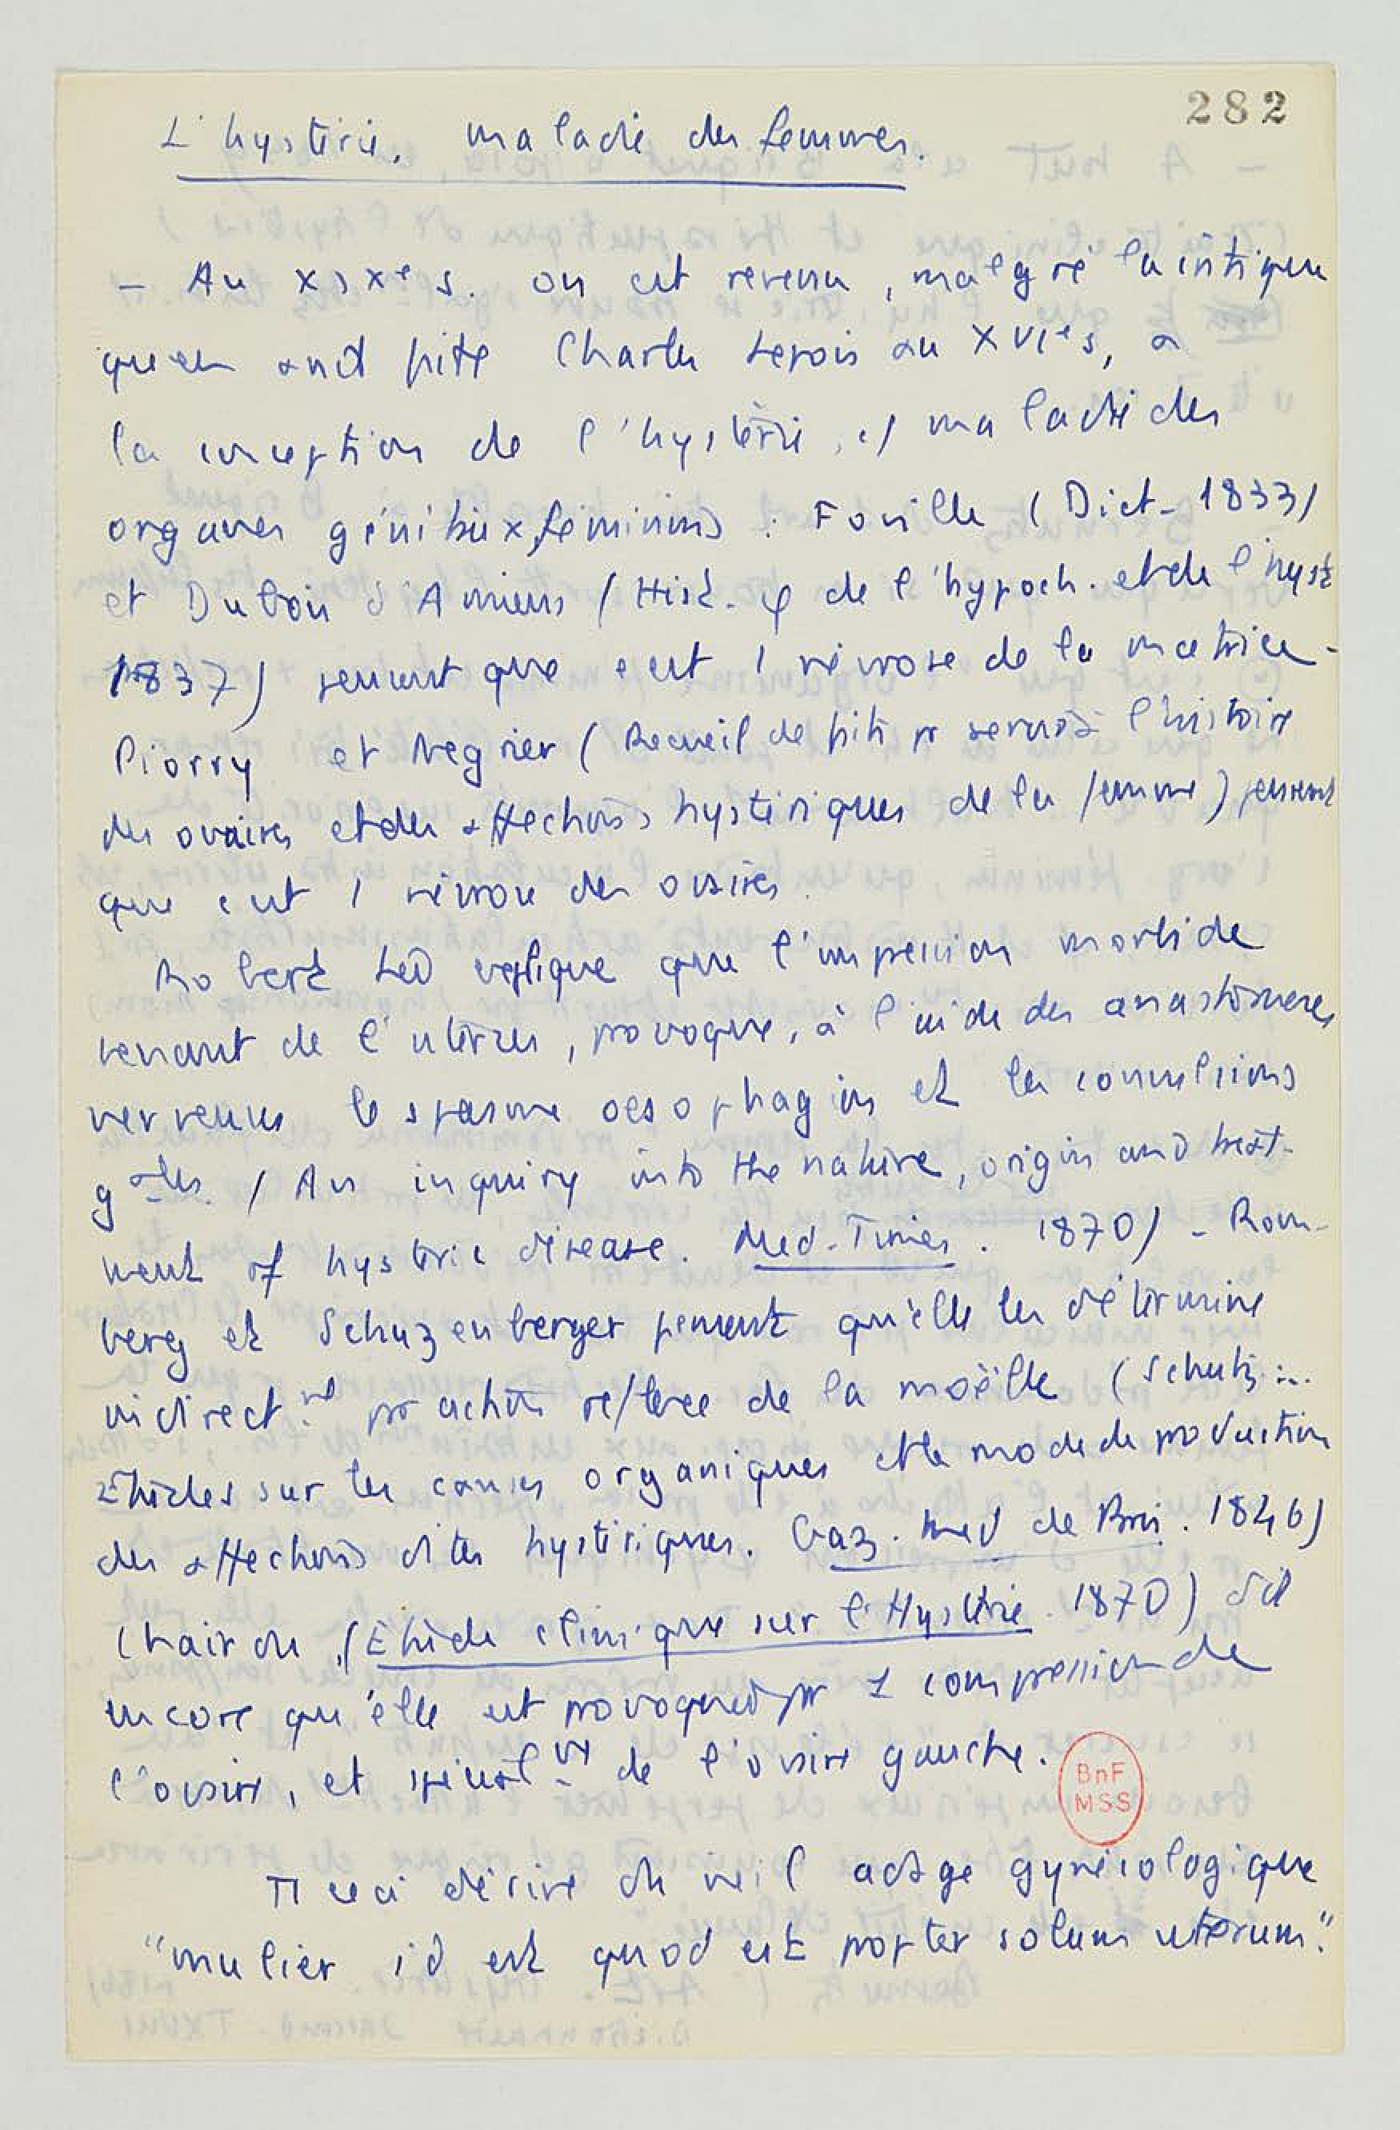 282
L'hystérie, maladie des femmes.
- Au XIXe s. on est revenu, malgré la critique
qu'en avait faite Charles Lepois au XVIe s, à
la conception de l'hystérie, c/ maladie des
organes génitaux féminins : Foville (Dict. 1833)
et Dubois d'Amiens (Hist. φ de l'hypoch. et de l'hyst
1837) pensent que c'est 1 névrose de la matrice.
Piorry et Negrier (Recueil de faits pr servir à l'histoire
des ovaires et des affections hystériques de la femme) pensent
que c'est 1 névrose des ovaires.
Robert Lee explique que l'impression morbide
venant de l'utérus, provoque, à l'aide des anastomoses
nerveuses le spasme oesophagien et les convulsions
gales. (An inquiry into the nature, origin and treat-
ment of hysteric disease. Med. Times. 1870) - Rom-
berg et Schuzenberger pensent qu'elle les détermine
indirectmt par action reflexe de la moëlle (Schutz...
Etudes sur les causes organiques et le mode de production
des affections dites hystériques. Gaz. med de Paris. 1846)
Chairou (Etude clinique sur l'Hystérie 1870) dit
encore qu'elle est provoquée pr 1 compression de
l'ovaire, et spécialmt de l'ovaire gauche.
BnF
MSS
Tt ceci dérive du vieil adage gynécologique
"mulier id est quod est propter solum uterum."